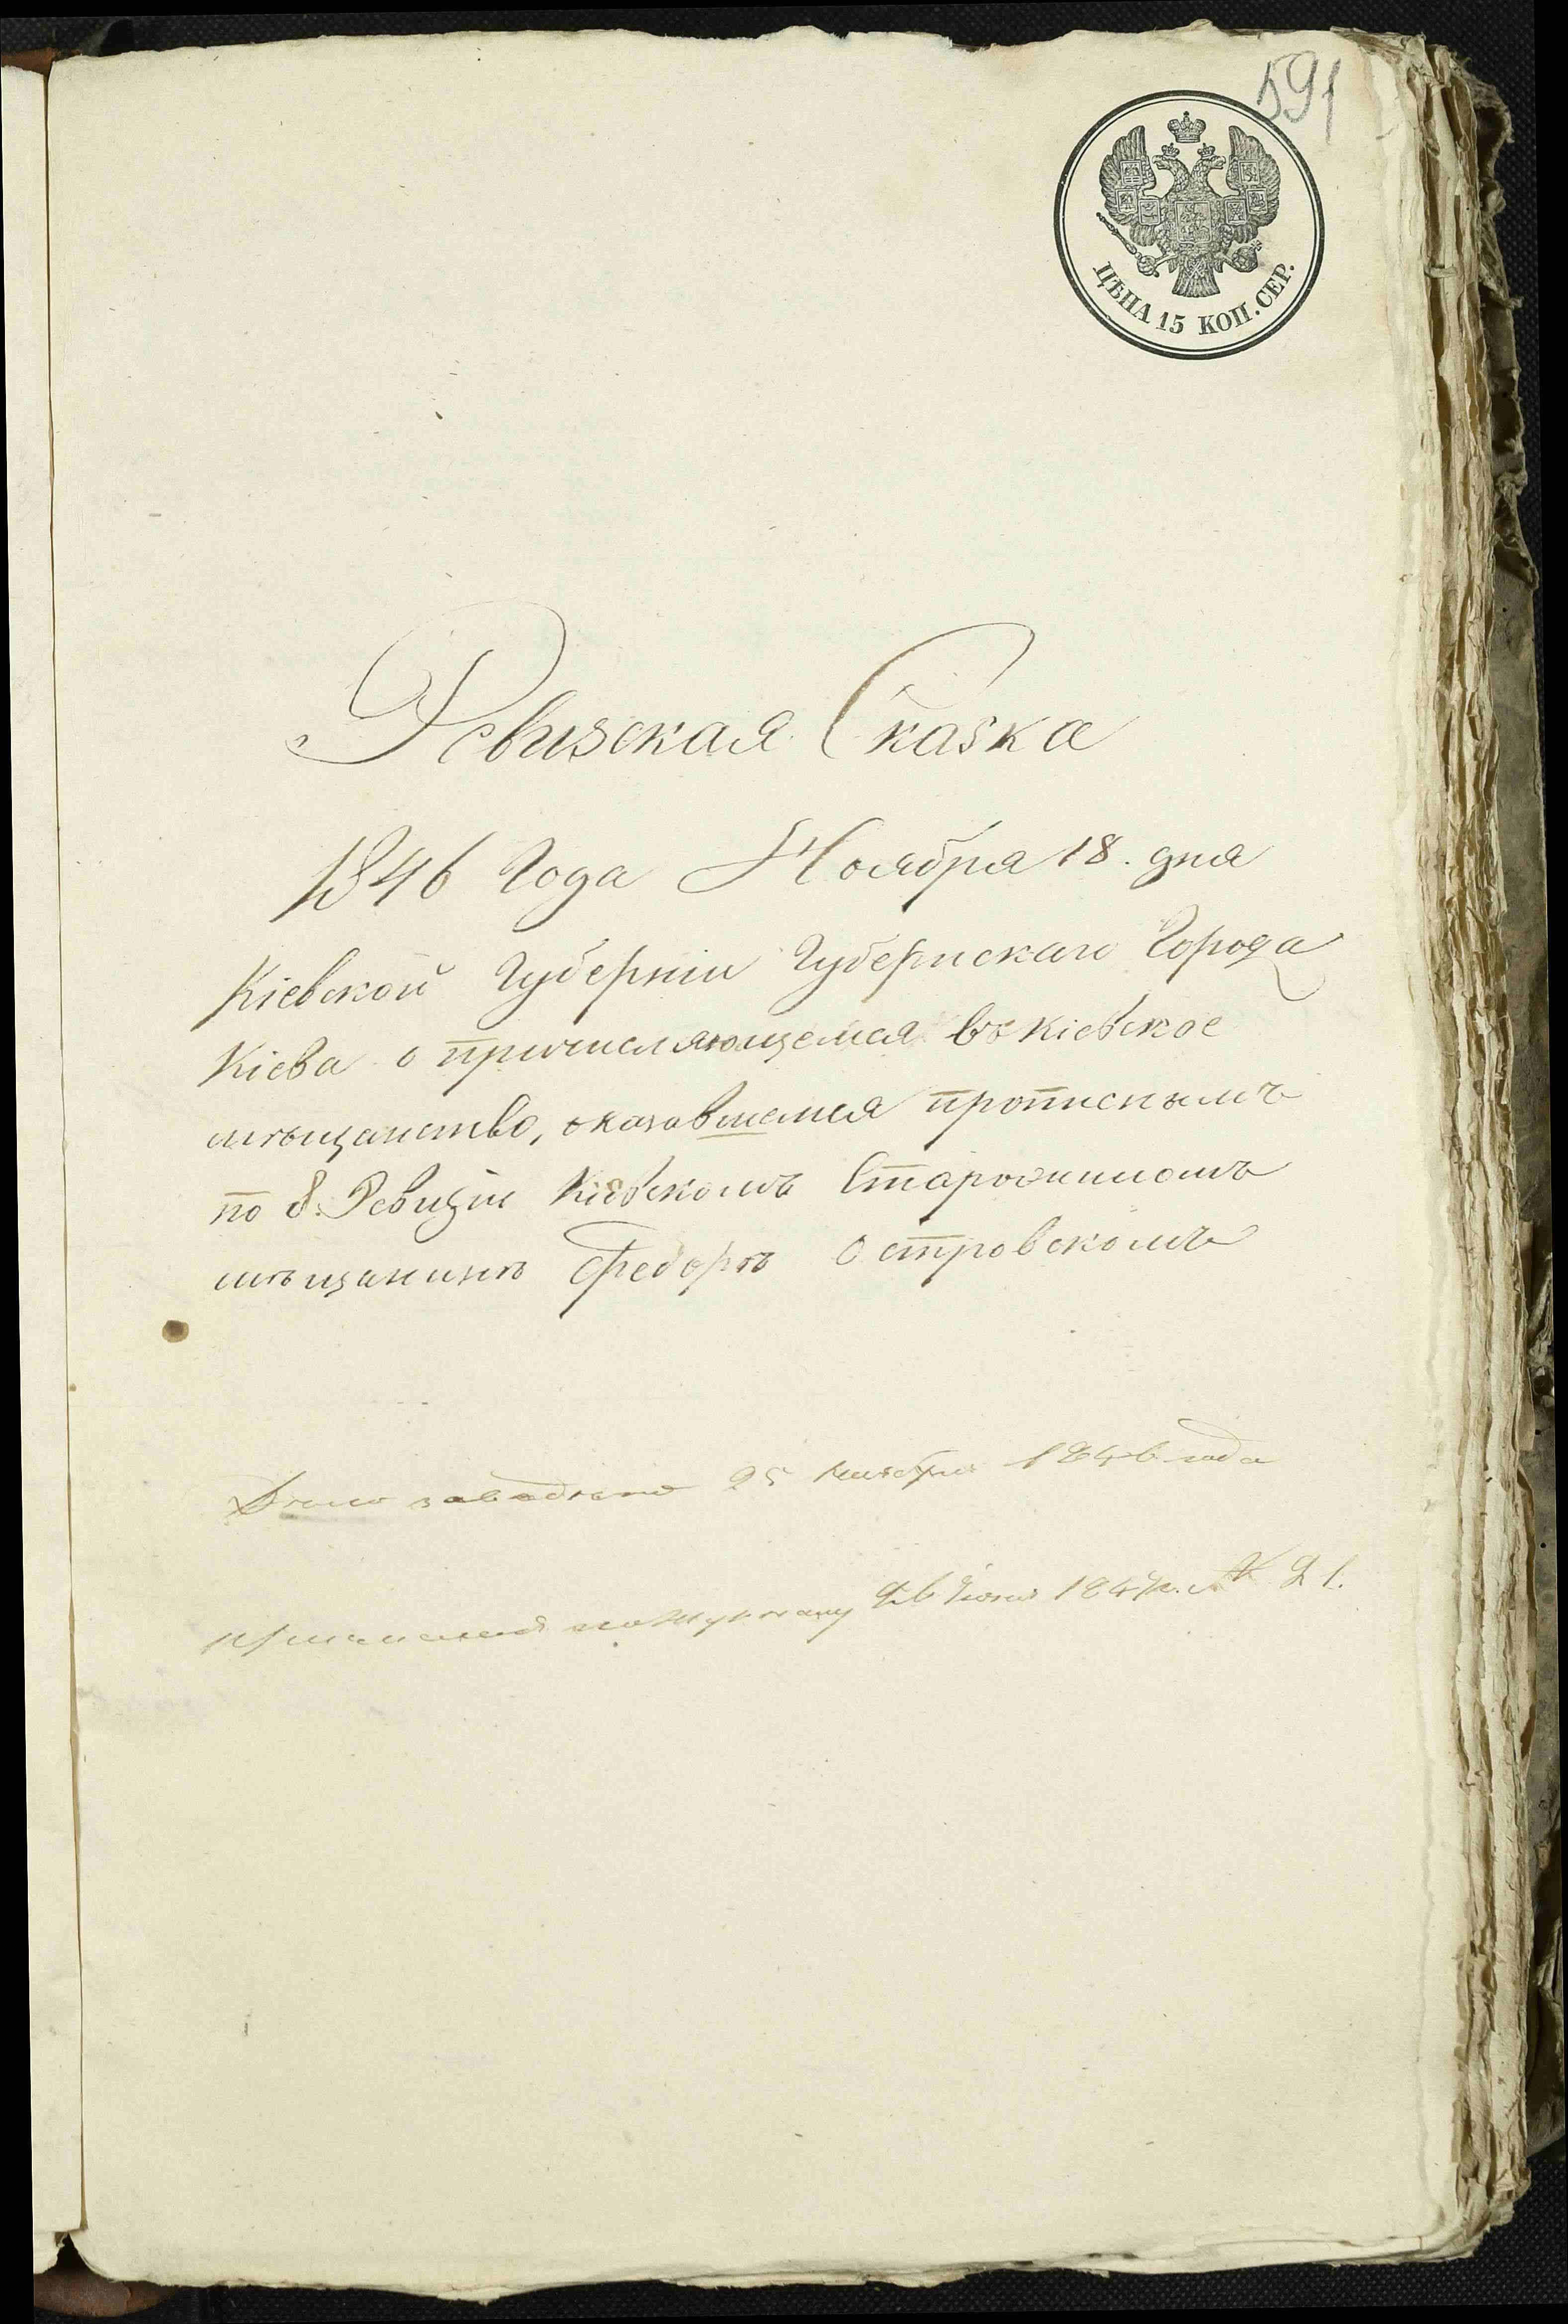 591
ЦѢНА 15 КОП. СЕР.
Ревизская Сказка
1846 Года Ноября 18. дня
Кіевской Губерніи Губернскаго Города
Кіева о причисляющемся въ Кіевское
мѣщанство, оказавшемся прописнымъ
по 8. Ревизіи Кіевскомъ Старожиломъ
мѣщанинѣ Федорѣ Островскомъ
Дело заведено 25 Ноября 1846 года
26 Іюня 1847 г. № 21.